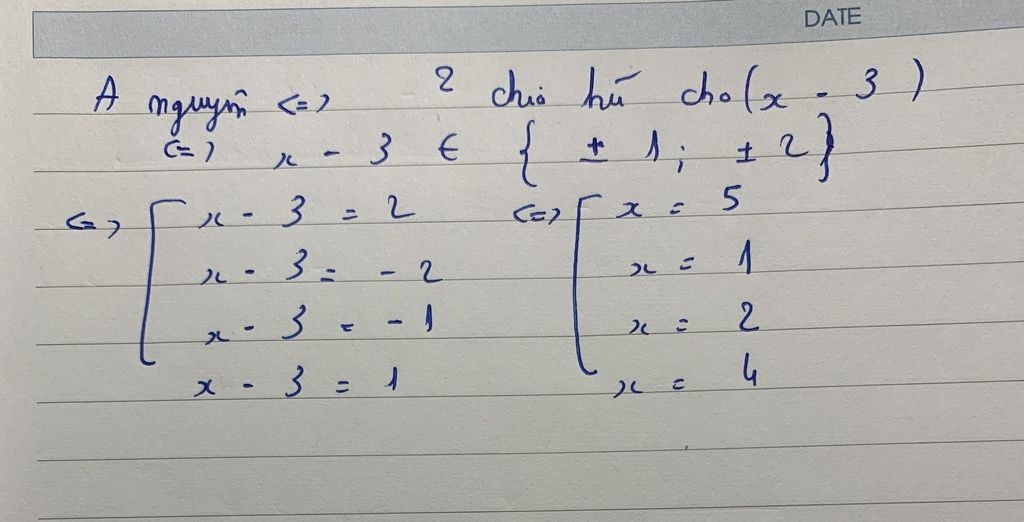 DATE
A nguyên <=> 2 chia hết cho (x - 3)
<=> x - 3 ∈ { ± 1; ± 2}
<=> [ x - 3 = 2 <=> [ x = 5
x - 3 = - 2 x = 1
x - 3 = - 1 x = 2
x - 3 = 1 x = 4